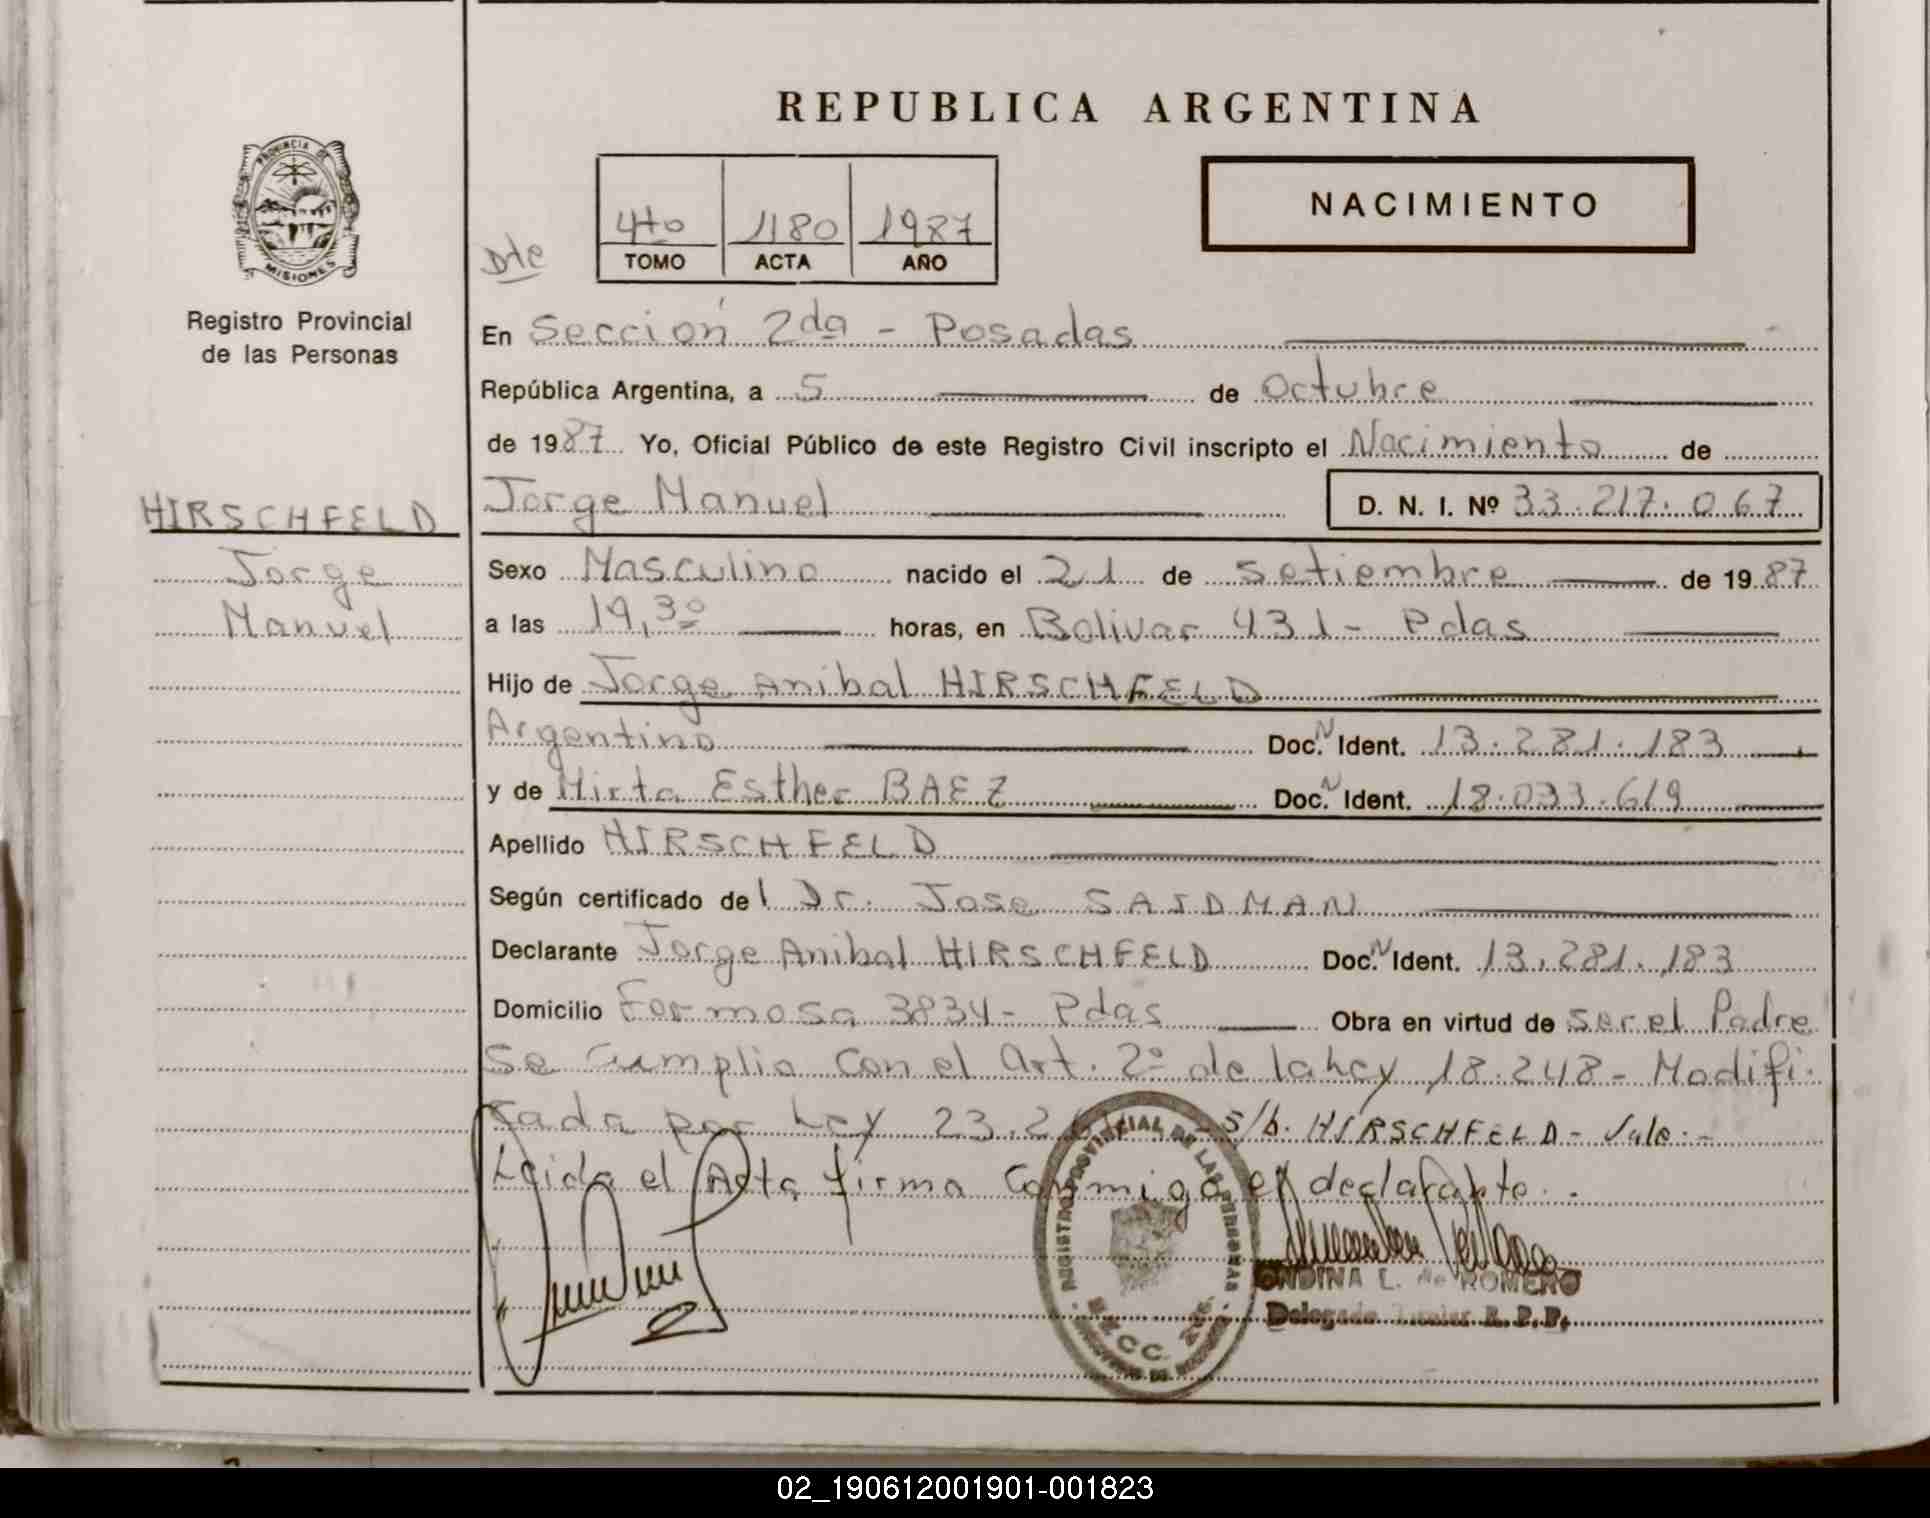 REPUBLICA ARGENTINA
PROVINCIA DE
MISIONES
Registro Provincial
de las Personas
Dte
4to 1180 1987
TOMO ACTA AÑO
NACIMIENTO
En Sección 2da - Posadas
República Argentina, a 5 de Octubre
de 1987 Yo, Oficial Público de este Registro Civil inscripto el Nacimiento de
HIRSCHFELD
Jorge
Manuel
Jorge Manuel D. N. I. Nº 33.217.067
Sexo Masculino nacido el 21 de setiembre de 1987
a las 19,30 horas, en Bolivar 431 - Pdas
Hijo de Jorge Anibal HIRSCHFELD
Argentino Doc. N Ident. 13.281.183
y de Mirta Esther BAEZ Doc. N Ident. 18.033.619
Apellido HIRSCHFELD
Según certificado del Dr. Jose SAIDMAN
Declarante Jorge Anibal HIRSCHFELD Doc. N Ident. 13.281.183
Domicilio Formosa 3834 - Pdas Obra en virtud de ser el Padre
Se Cumplio Con el Art. 2º de la Ley 18.248 - Modifi
cada por Ley 23.2 s/b. HIRSCHFELD - Vale.-
Leida el Acta firma Conmigo el declarante.
REGISTRO PROVINCIAL DE LAS PERSONAS
ONDINA L. de ROMERO
Delegada Titular R. P. P.
02_190612001901-001823